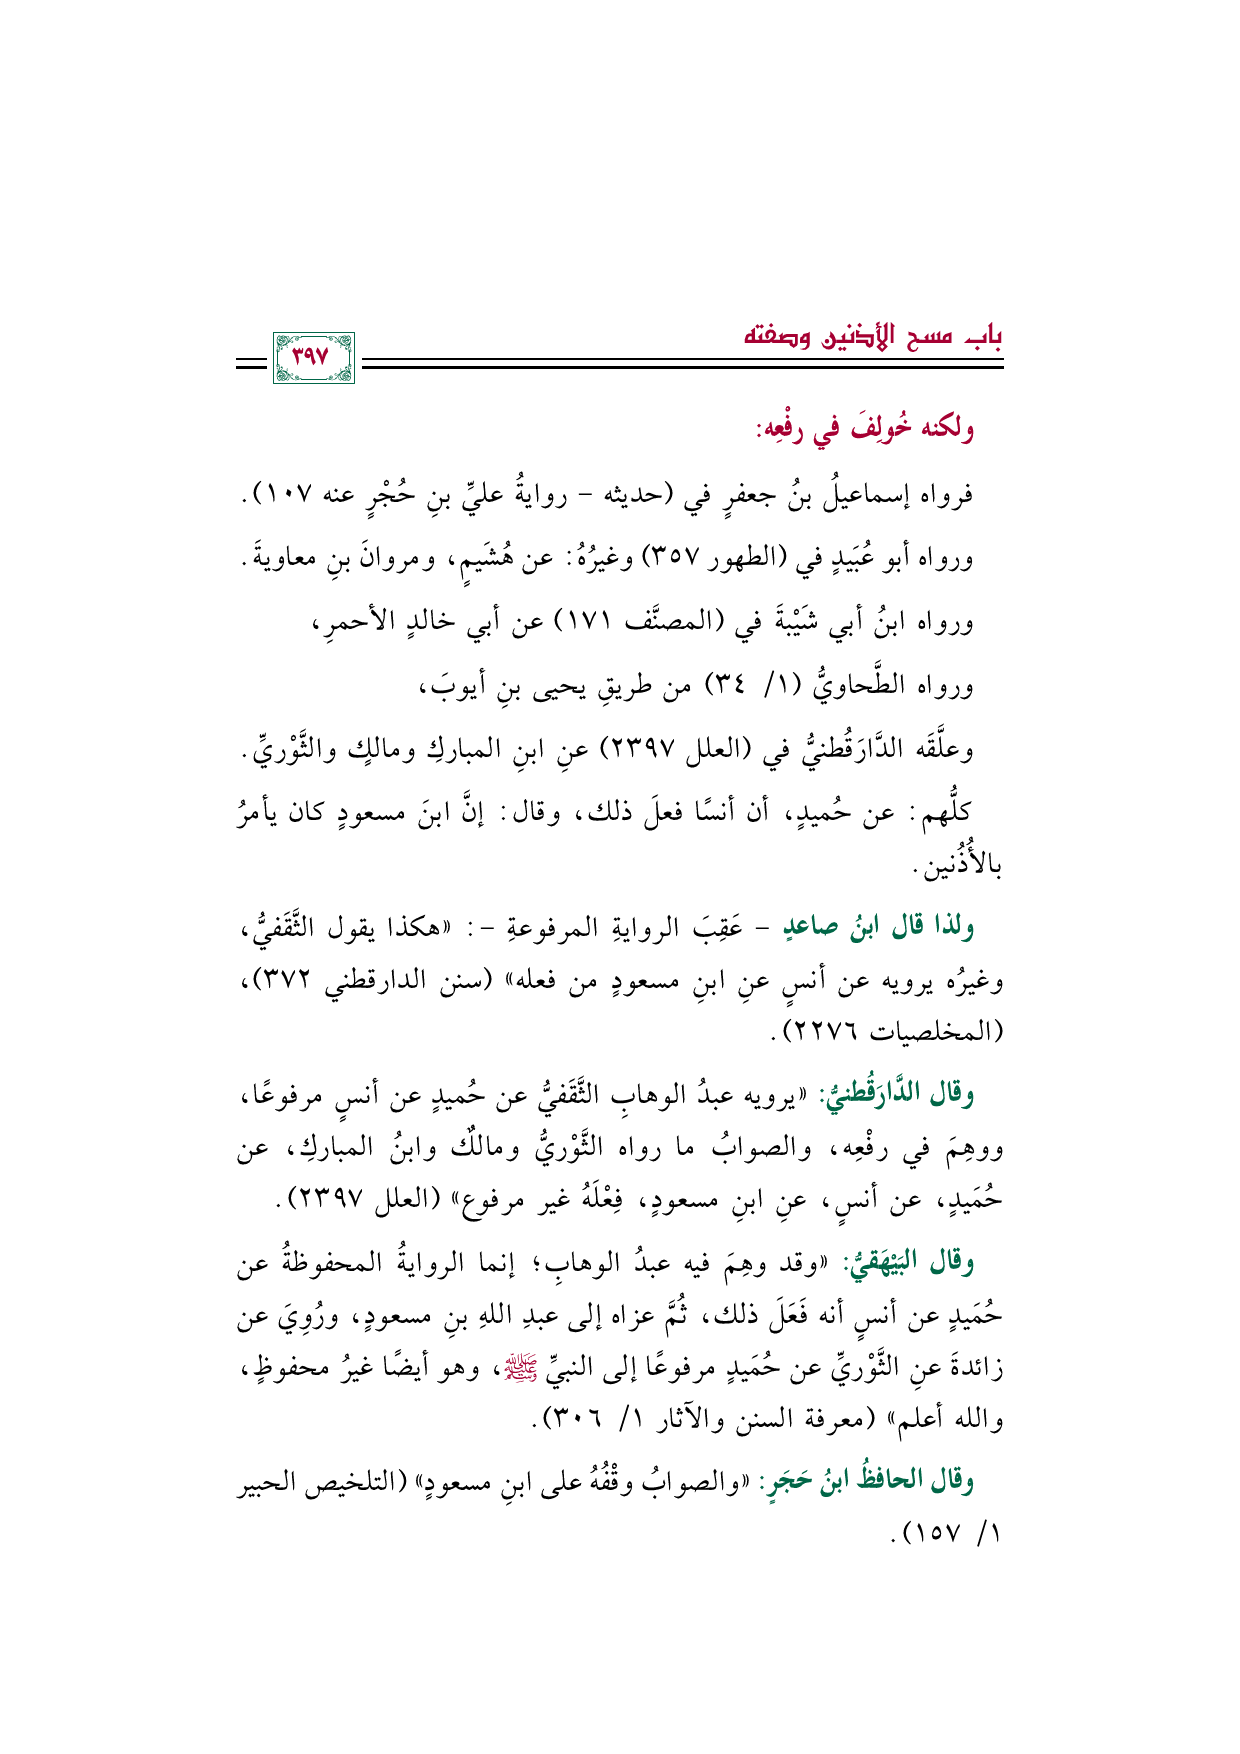 باب مسح الأذنين وصفته
٣٩٧
ولكنه خُولِفَ في رفْعِه:
فرواه إسماعيلُ بنُ جعفرٍ في (حديثه – روايةُ عليِّ بنِ حُجْرٍ عنه ١٠٧).
ورواه أبو عُبَيدٍ في (الطهور ٣٥٧) وغيرُهُ: عن هُشَيمٍ، ومروانَ بنِ معاويةَ.
ورواه ابنُ أبي شَيْبةَ في (المصنَّف ١٧١) عن أبي خالدٍ الأحمرِ،
ورواه الطَّحاويُّ (١/ ٣٤) من طريقِ يحيى بنِ أيوبَ،
وعلَّقَه الدَّارَقُطنيُّ في (العلل ٢٣٩٧) عنِ ابنِ المباركِ ومالكٍ والثَّوْريِّ.
كلُّهم: عن حُميدٍ، أن أنسًا فعلَ ذلك، وقال: إنَّ ابنَ مسعودٍ كان يأمرُ
بالأُذُنين.
ولذا قال ابنُ صاعدٍ – عَقِبَ الروايةِ المرفوعةِ –: «هكذا يقول الثَّقَفيُّ،
وغيرُه يرويه عن أنسٍ عنِ ابنِ مسعودٍ من فعله» (سنن الدارقطني ٣٧٢)،
(المخلصيات ٢٢٧٦).
وقال الدَّارَقُطنيُّ: «يرويه عبدُ الوهابِ الثَّقَفيُّ عن حُميدٍ عن أنسٍ مرفوعًا،
ووهِمَ في رفْعِه، والصوابُ ما رواه الثَّوْريُّ ومالكٌ وابنُ المباركِ، عن
حُمَيدٍ، عن أنسٍ، عنِ ابنِ مسعودٍ، فِعْلَهُ غير مرفوع» (العلل ٢٣٩٧).
وقال البَيْهَقيُّ: «وقد وهِمَ فيه عبدُ الوهابِ؛ إنما الروايةُ المحفوظةُ عن
حُمَيدٍ عن أنسٍ أنه فَعَلَ ذلك، ثُمَّ عزاه إلى عبدِ اللهِ بنِ مسعودٍ، ورُوِيَ عن
زائدةَ عنِ الثَّوْريِّ عن حُمَيدٍ مرفوعًا إلى النبيِّ ﷺ، وهو أيضًا غيرُ محفوظٍ،
والله أعلم» (معرفة السنن والآثار ١/ ٣٠٦).
وقال الحافظُ ابنُ حَجَرٍ: «والصوابُ وقْفُهُ على ابنِ مسعودٍ» (التلخيص الحبير
١/ ١٥٧).